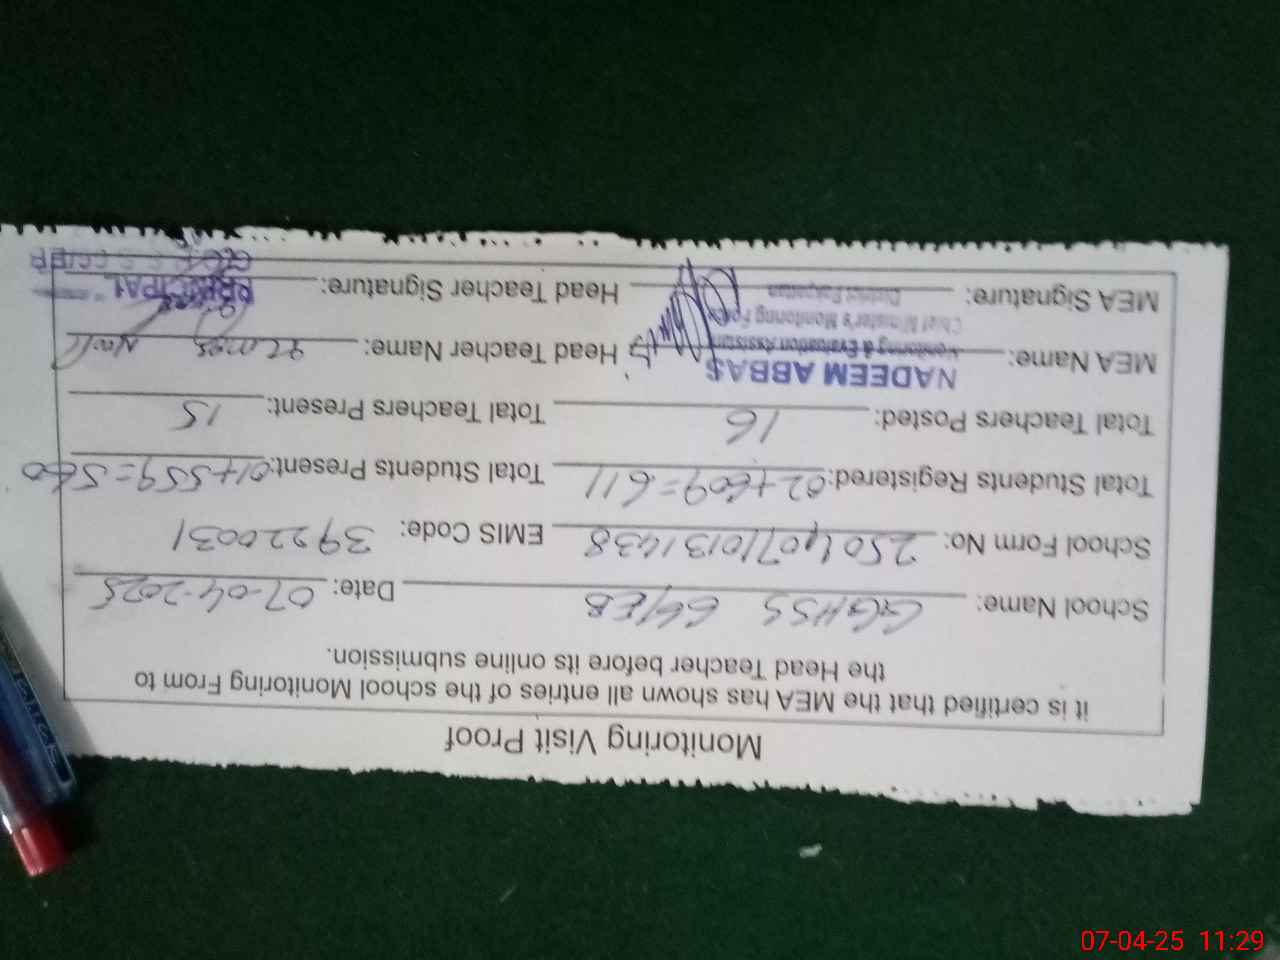 Monitoring Visit Proof
it is certified that the MEA has shown all entries of the school Monitoring From to
the Head Teacher before its online submission.
School Name: GGHSS 66/EB Date: 07-04-2025
School Form No: 25040710131438 EMIS Code: 39220031
Total Students Registered: 02+609=611 Total Students Present: 01+559=560
Total Teachers Posted: 16 Total Teachers Present: 15
MEA Name: NADEEM ABBAS Head Teacher Name:
Monitoring & Evaluation Assistant
Chief Minister's Monitoring Force
District Pakpattan
MEA Signature: Head Teacher Signature: PRINCIPAL
07-04-25 11:29